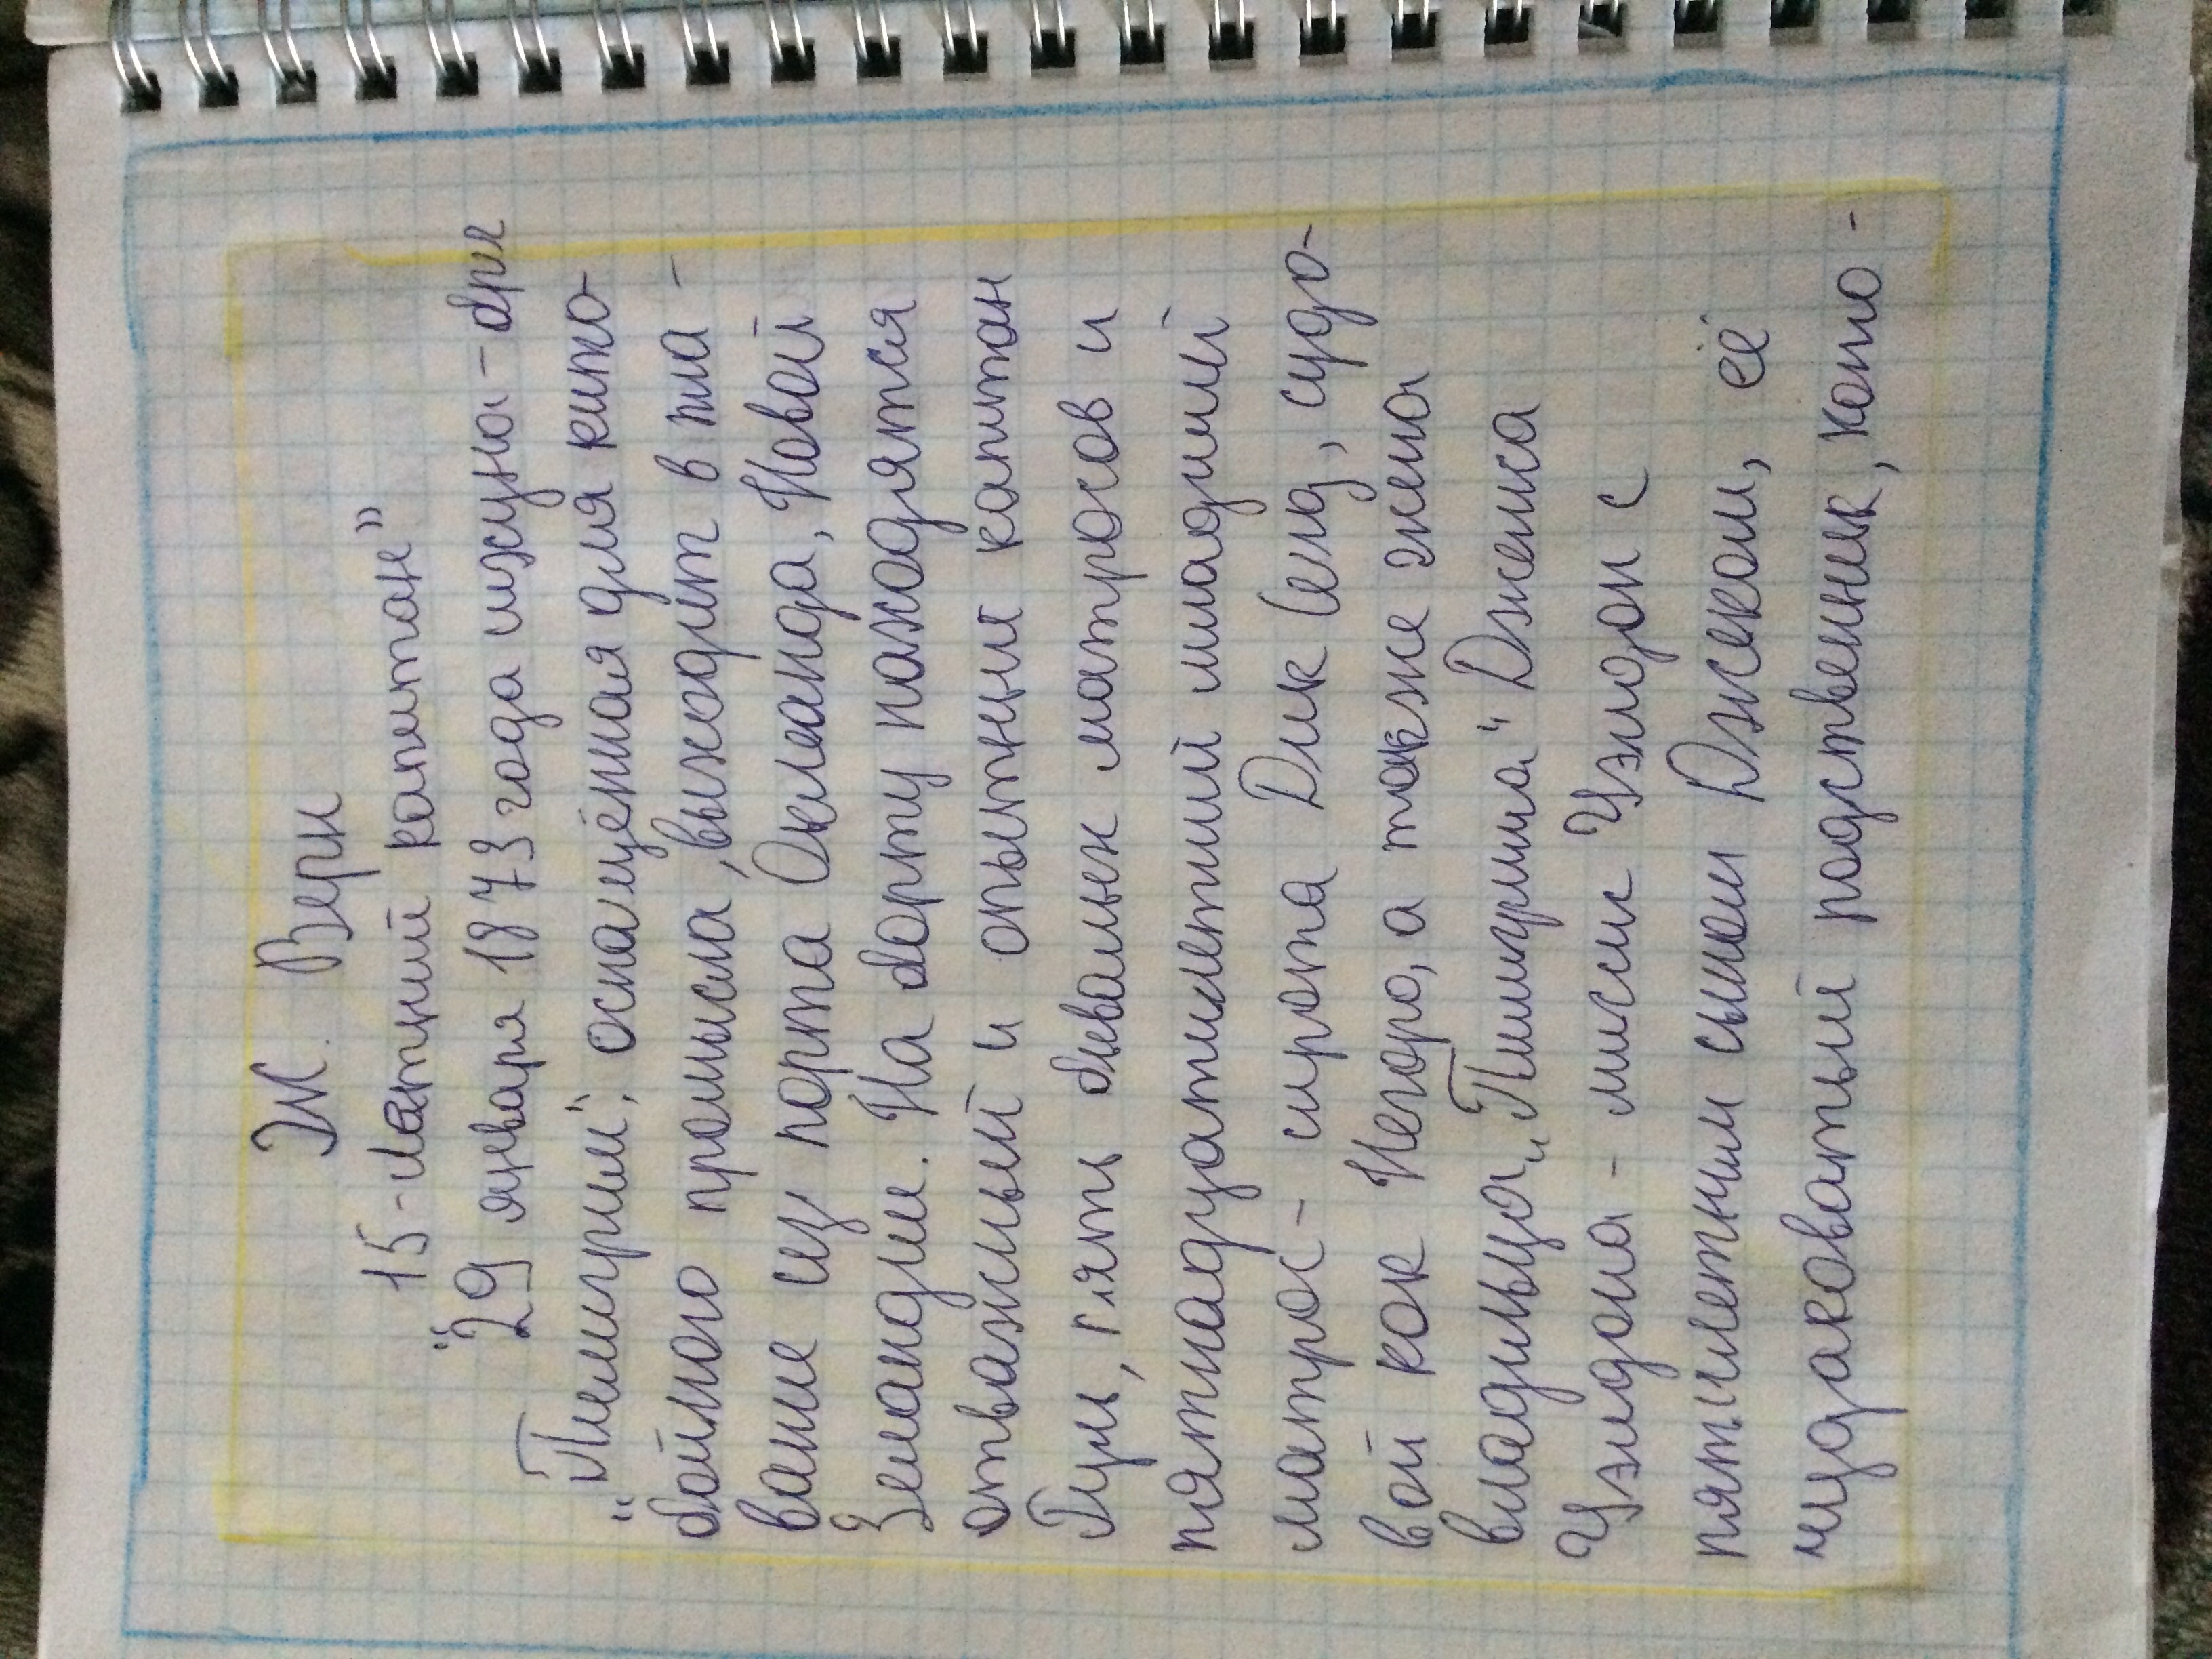 Ж. Верн
"15-летний капитан"
29 января 1873 года шхуна-бриг
"Пилигрим", оснащённая для кито-
бойного промысла, выходит в пла-
вание из порта Окленда, Новой
Зеландии. На борту находятся
отважный и опытный капитан
Гуль, пять бывалых матросов и
пятнадцатилетний младший
матрос - сирота Дик Сенд, судо-
вой кок Негоро, а также жена
владельца „Пилигрима" Джемса
Уэлдона - миссис Уэлдон с
пятилетним сыном Джеком, её
чудаковатый родственник, кото-